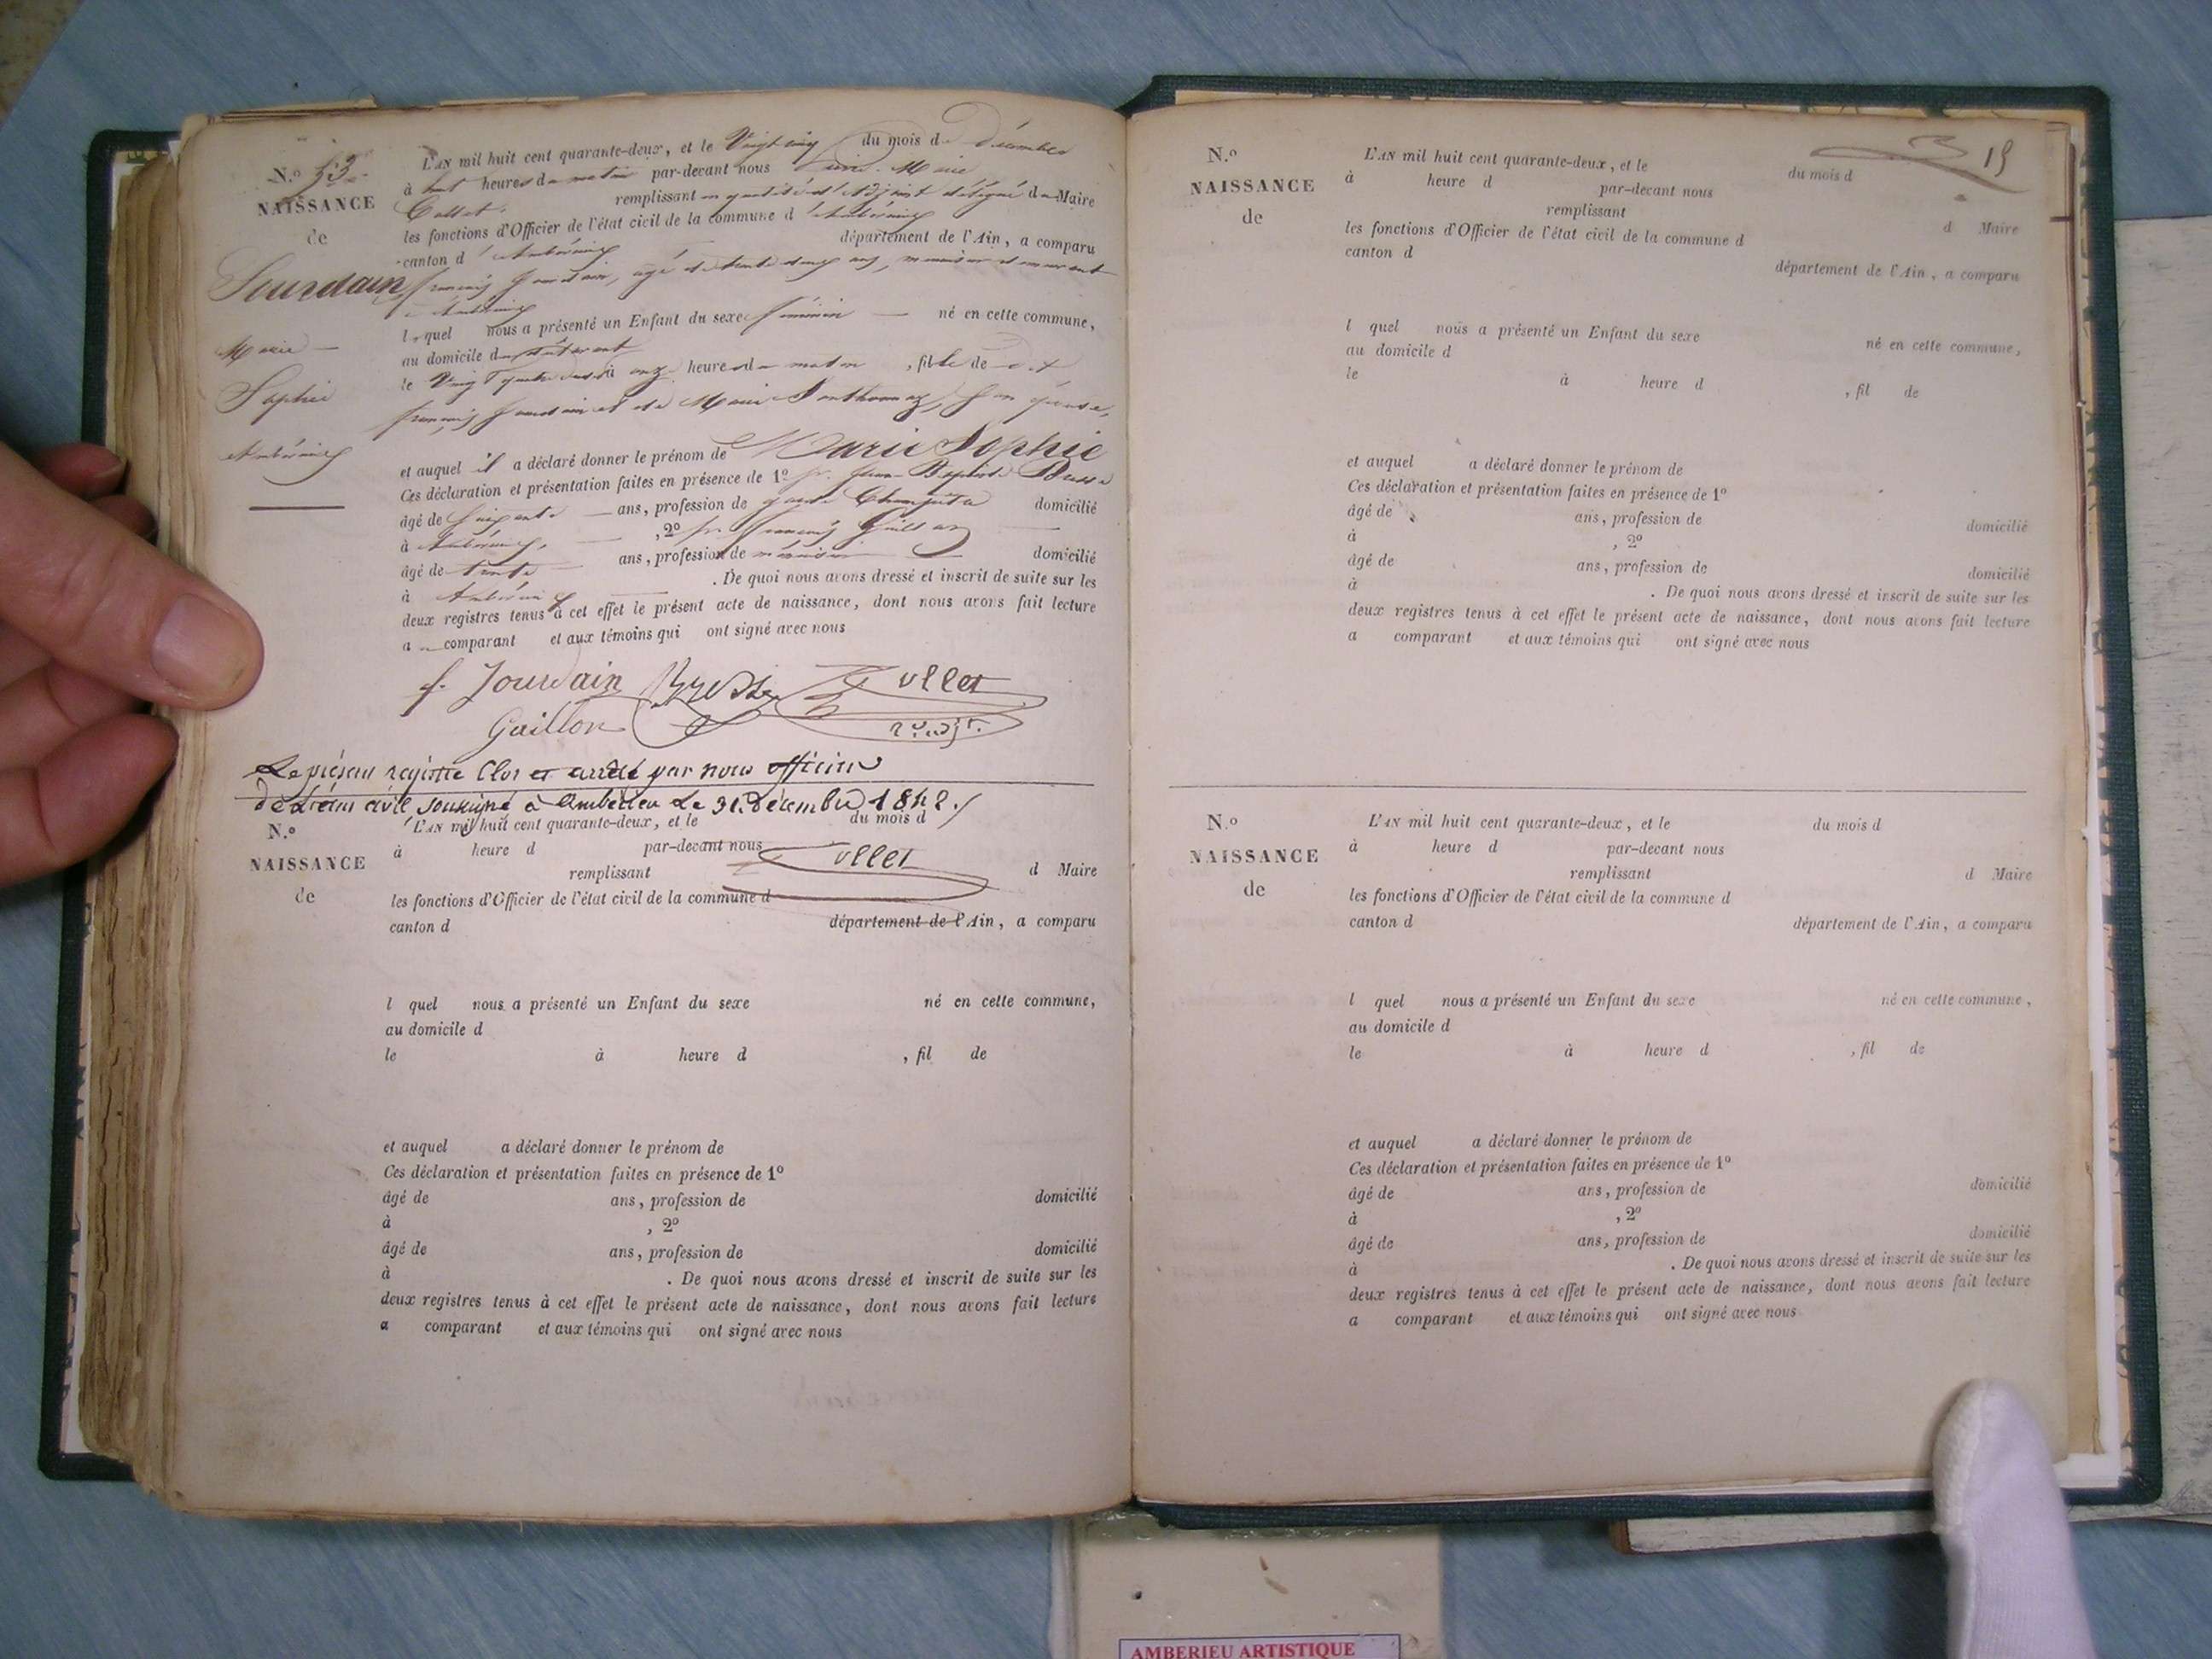 N.º 53.
NAISSANCE
de
Jourdain
Marie
Sophie
Ambérieux
L'AN mil huit cent quarante-deux, et le Vingt cinq du mois de Décembre
à huit heures du matin par-devant nous Marie
Collet remplissant en qualité d'adjoint délégué du Maire
les fonctions d'Officier de l'état civil de la commune d'Ambérieux
canton d'Ambérieux département de l'Ain, a comparu
françois Jourdain, agé de trente cinq ans, menuisier demeurant
à Ambérieux
lequel nous a présenté un Enfant du sexe féminin né en cette commune,
au domicile du déclarant
le Vingt quatre à onze heures du matin, fille de
françois Jourdain et de Marie son épouse,
et auquel il a déclaré donner le prénom de Marie Sophie
Ces déclaration et présentation faites en présence de 1º Sr. Jean Baptiste Bresse
âgé de soixante ans, profession de garde Champêtre domicilié
à Ambérieux, 2º Sr. françois Guillon
âgé de trente ans, profession de menuisier domicilié
à Ambérieux. De quoi nous avons dressé et inscrit de suite sur les
deux registres tenus à cet effet le présent acte de naissance, dont nous avons fait lecture
au comparant et aux témoins qui ont signé avec nous
f. Jourdain Bresse Collet
Guillon 2e adjt.
Le présent registre Clos et arrêté par nous officier
de L'état civil soussigné à Ambérieu Le 31 Décembre 1842.
N.º
NAISSANCE
de
L'AN mil huit cent quarante-deux, et le du mois d
à heure d par-devant nous
Collet
remplissant d Maire
les fonctions d'Officier de l'état civil de la commune d
canton d département de l'Ain, a comparu
l quel nous a présenté un Enfant du sexe né en cette commune,
au domicile d
le à heure d , fil de
et auquel a déclaré donner le prénom de
Ces déclaration et présentation faites en présence de 1º
âgé de ans, profession de domicilié
à , 2º
âgé de ans, profession de domicilié
à . De quoi nous avons dressé et inscrit de suite sur les
deux registres tenus à cet effet le présent acte de naissance, dont nous avons fait lecture
a comparant et aux témoins qui ont signé avec nous
15
N.º
NAISSANCE
de
L'AN mil huit cent quarante-deux, et le du mois d
à heure d par-devant nous
remplissant d Maire
les fonctions d'Officier de l'état civil de la commune d
canton d département de l'Ain, a comparu
l quel nous a présenté un Enfant du sexe né en cette commune,
au domicile d
le à heure d , fil de
et auquel a déclaré donner le prénom de
Ces déclaration et présentation faites en présence de 1º
âgé de ans, profession de domicilié
à , 2º
âgé de ans, profession de domicilié
à . De quoi nous avons dressé et inscrit de suite sur les
deux registres tenus à cet effet le présent acte de naissance, dont nous avons fait lecture
a comparant et aux témoins qui ont signé avec nous
N.º
NAISSANCE
de
L'AN mil huit cent quarante-deux, et le du mois d
à heure d par-devant nous
remplissant d Maire
les fonctions d'Officier de l'état civil de la commune d
canton d département de l'Ain, a comparu
l quel nous a présenté un Enfant du sexe né en cette commune,
au domicile d
le à heure d , fil de
et auquel a déclaré donner le prénom de
Ces déclaration et présentation faites en présence de 1º
âgé de ans, profession de domicilié
à , 2º
âgé de ans, profession de domicilié
à . De quoi nous avons dressé et inscrit de suite sur les
deux registres tenus à cet effet le présent acte de naissance, dont nous avons fait lecture
a comparant et aux témoins qui ont signé avec nous
AMBERIEU ARTISTIQUE